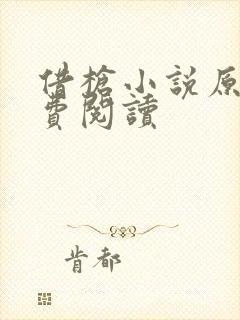 借槍小說原
費閱讀
肯都